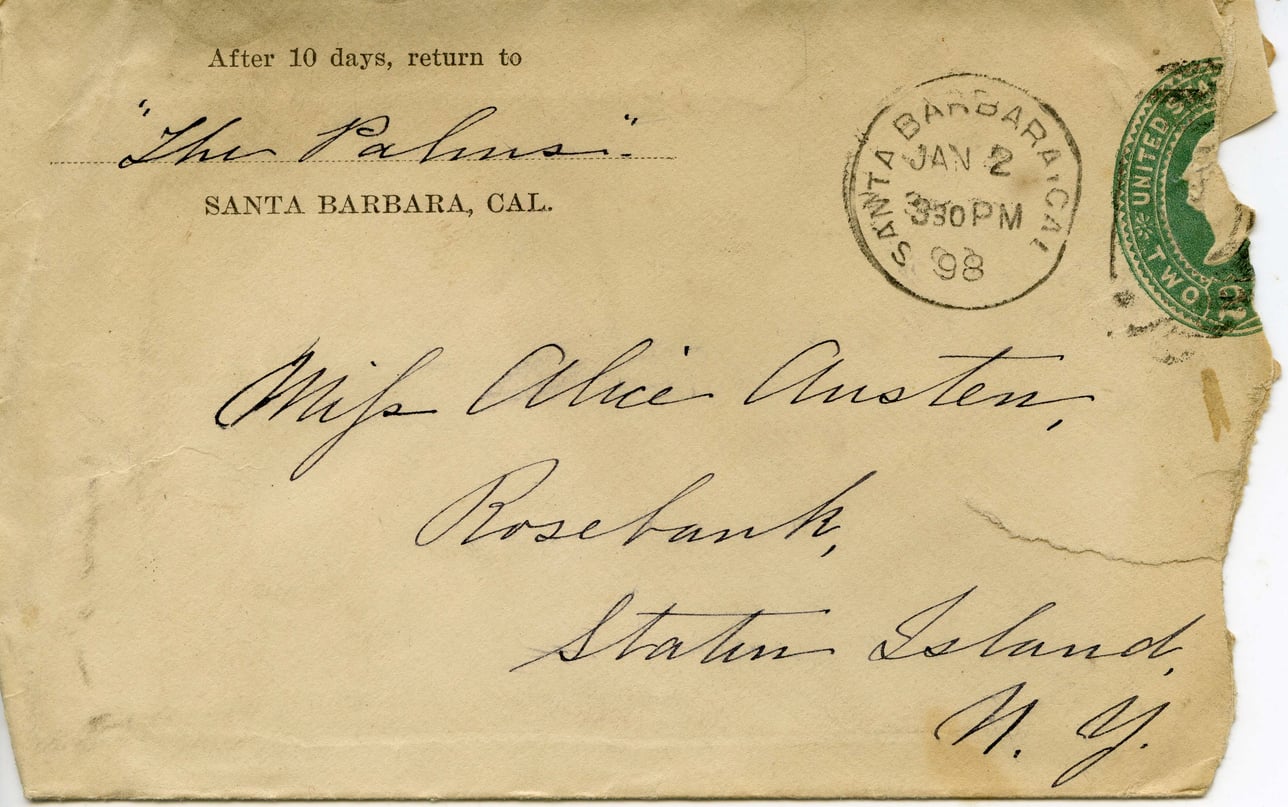 After 10 days, return to
"The Palms."
SANTA BARBARA, CAL.
SANTA BARBARA, CAL
JAN 2
330PM
98
UNITED
TWO
2
Miss Alice Austen,
Rosebank,
Staten Island,
N. Y.